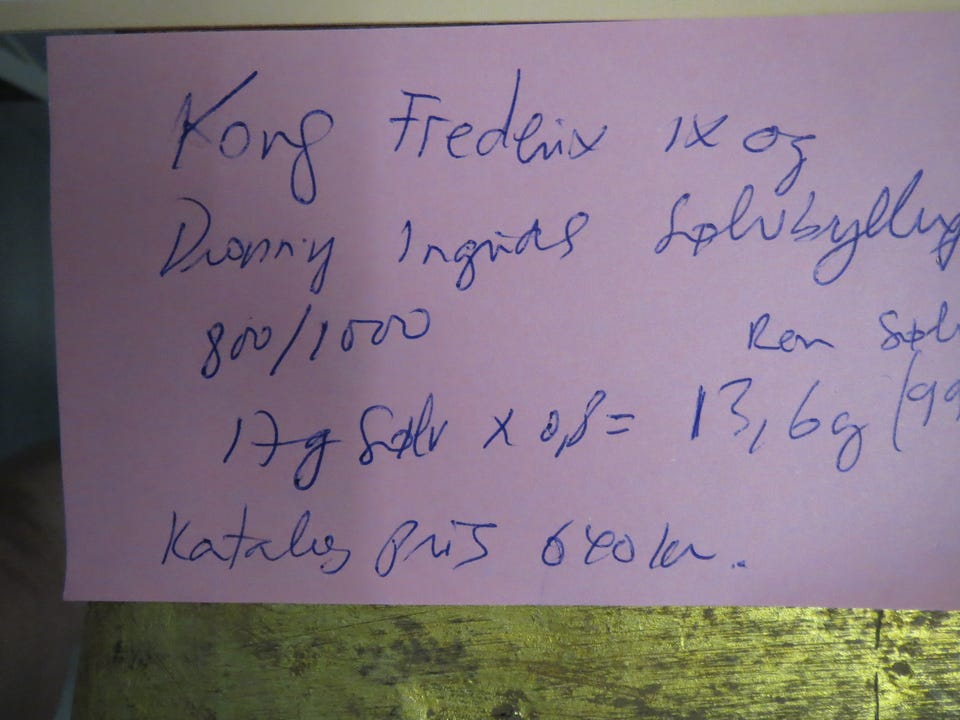 Kong Frederix IX og
Dronny Ingrids Sølvbryllup
800/1000 Ren Sølv
17g Sølv x 0,8 = 13,6g (99
Katalog Pris 640 kr.